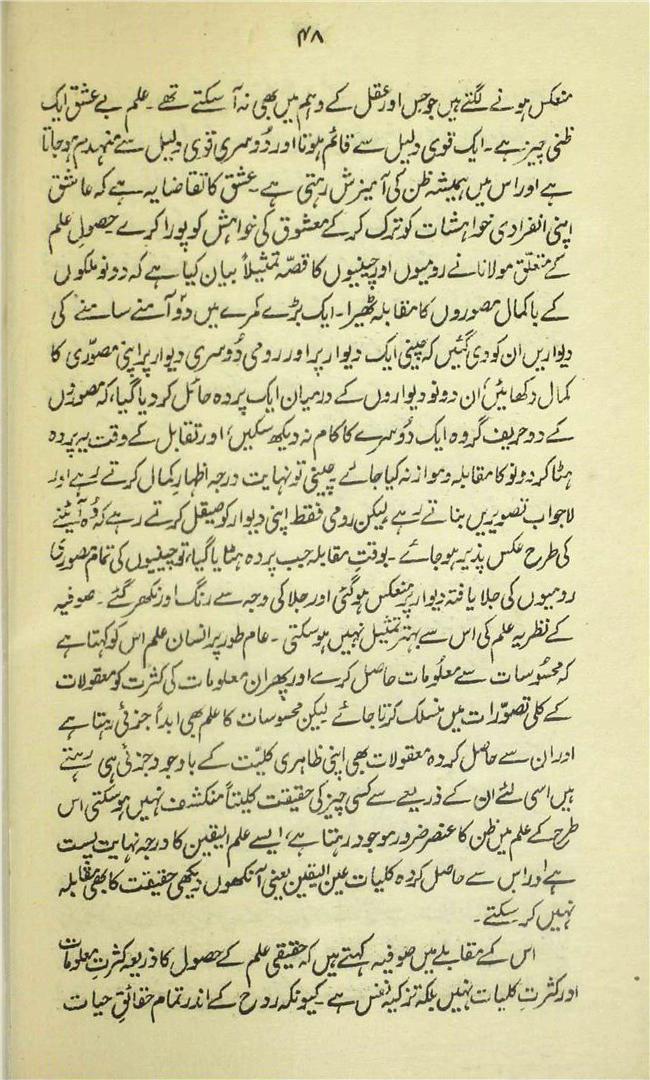 ۴۸
منعکس ہونے لگتے ہیں جو جس اور عقل کے وہم میں بھی نہ آ سکتے تھے ۔ علم بے عشق ایک
ظنی چیز ہے ۔ ایک قوی دلیل سے قائم ہوتا اور دُوسری قوی دلیل سے منہدم ہو جاتا
ہے اور اس میں ہمیشہ ظن کی آمیزش رہتی ہے ۔ عشق کا تقاضا یہ ہے کہ عاشق
اپنی انفرادی خواہشات کو ترک کر کے معشوق کی خواہش کو پورا کرے ۔ حصولِ علم
کے متعلق مولانا نے رومیوں اور چینیوں کا قصّہ تمثیلاً بیان کیا ہے کہ دونو ملکوں
کے باکمال مصوروں کا مقابلہ ٹھیرا ۔ ایک بڑے کمرے میں دو آمنے سامنے کی
دیواریں ان کو دی گئیں کہ چینی ایک دیوار پر اور رومی دُوسری دیوار پر اپنی مصوّری کا
کمال دکھائیں، اُن دونو دیواروں کے درمیان ایک پردہ حائل کر دیا گیا، کہ مصوّروں
کے دو حریف گروہ ایک دُوسرے کا کام نہ دیکھ سکیں، اور تقابل کے وقت یہ پردہ
ہٹا کر دونو کا مقابلہ و موازنہ کیا جائے ۔ چینی تو نہایت درجہ اظہارِ کمال کرتے رہے اور
لاجواب تصویریں بناتے رہے، لیکن رومی فقط اپنی دیوار کو صیقل کرتے رہے کہ وُہ آئینے
کی طرح عکس پذیر ہو جائے ۔ بوقتِ مقابلہ جب پردہ ہٹایا گیا، تو چینیوں کی تمام مصوری
رومیوں کی جلا یافتہ دیوار پر منعکس ہو گئی اور جلا کی وجہ سے رنگ اور نکھر گئے ۔ صوفیہ
کے نظریہ علم کی اس سے بہتر تمثیل نہیں ہو سکتی ۔ عام طور پر انسان علم اس کو کہتا ہے
کہ محسُوسات سے معلُومات حاصل کرے اور پھر ان معلومات کی کثرت کو معقولات
کے کلی تصوّرات میں منسلک کرتا جائے لیکن محسوسات کا علم بھی ابداً جزئی رہتا ہے
اور ان سے حاصل کردہ معقولات بھی اپنی ظاہری کلیّت کے باوجود جزئی ہی رہتے
ہیں اسی لئے ان کے ذریعے سے کسی چیز کی حقیقت کلیتاً منکشف نہیں ہو سکتی اس
طرح کے علم میں ظن کا عنصر ضرور موجود رہتا ہے، ایسے علم الیقین کا درجہ نہایت پست
ہے اور اس سے حاصل کردہ کلیات عین الیقین یعنی آنکھوں دیکھی حقیقت کا بھی مقابلہ
نہیں کر سکتے ۔
اس کے مقابلے میں صوفیہ کہتے ہیں کہ حقیقی علم کے حصول کا ذریعہ کثرتِ معلومات
اور کثرتِ کلیات نہیں بلکہ تزکیہ نفس ہے ۔ کیونکہ روح کے اندر تمام حقائقِ حیات